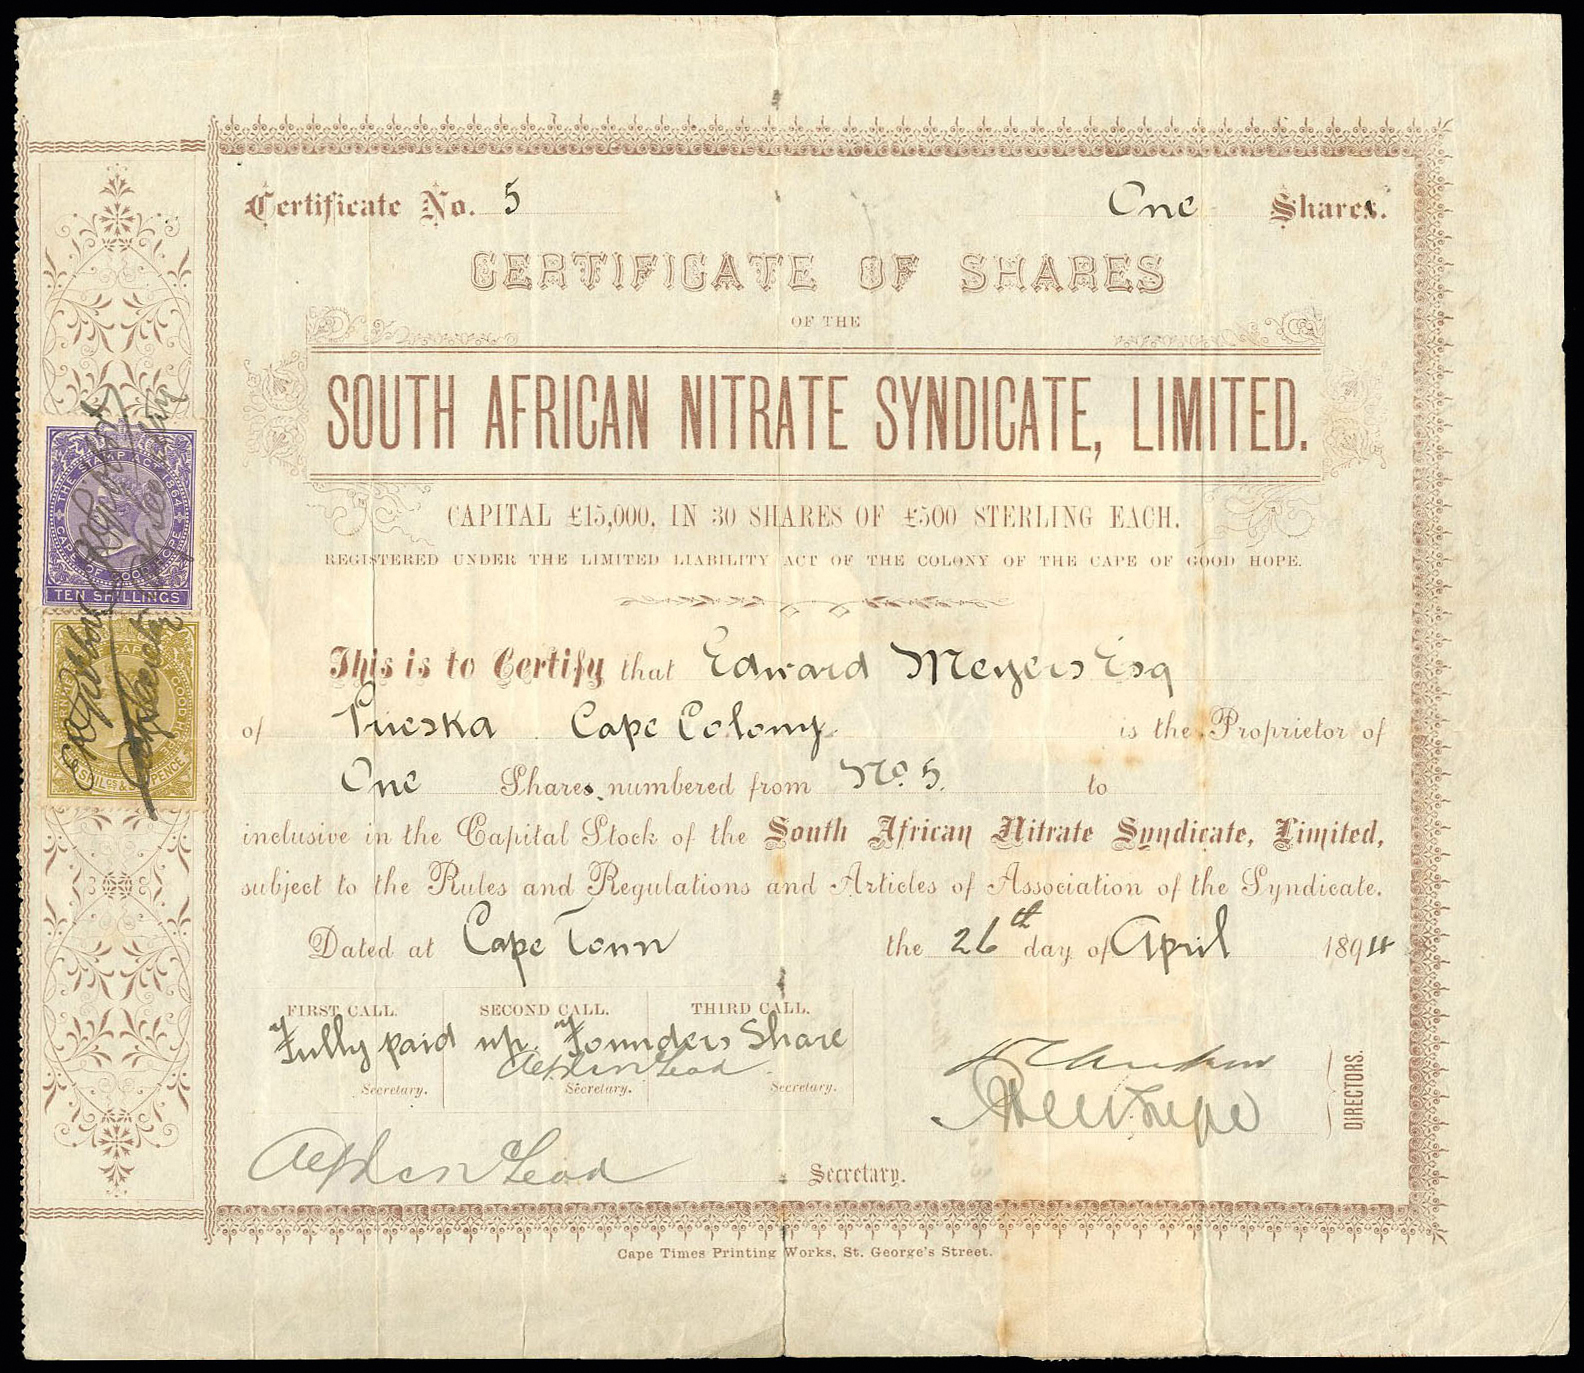 Certificate No. 5 One Shares.
CERTIFICATE OF SHARES
OF THE
SOUTH AFRICAN NITRATE SYNDICATE, LIMITED.
CAPITAL £15,000, IN 30 SHARES OF £500 STERLING EACH.
REGISTERED UNDER THE LIMITED LIABILITY ACT OF THE COLONY OF THE CAPE OF GOOD HOPE.
This is to Certify that Edward Meyers Esq
of Prieska Cape Colony is the Proprietor of
One Shares numbered from No. 5 to
inclusive in the Capital Stock of the South African Nitrate Syndicate, Limited,
subject to the Rules and Regulations and Articles of Association of the Syndicate.
Dated at Cape Town the 26th day of April 1894
FIRST CALL. SECOND CALL. THIRD CALL.
Fully paid up Founders Share
Secretary. Secretary. Secretary.
DIRECTORS.
Secretary.
Cape Times Printing Works, St. George's Street.
THE STAMP ACT 1864
CAPE OF GOOD HOPE
TEN SHILLINGS
CAPE OF GOOD HOPE